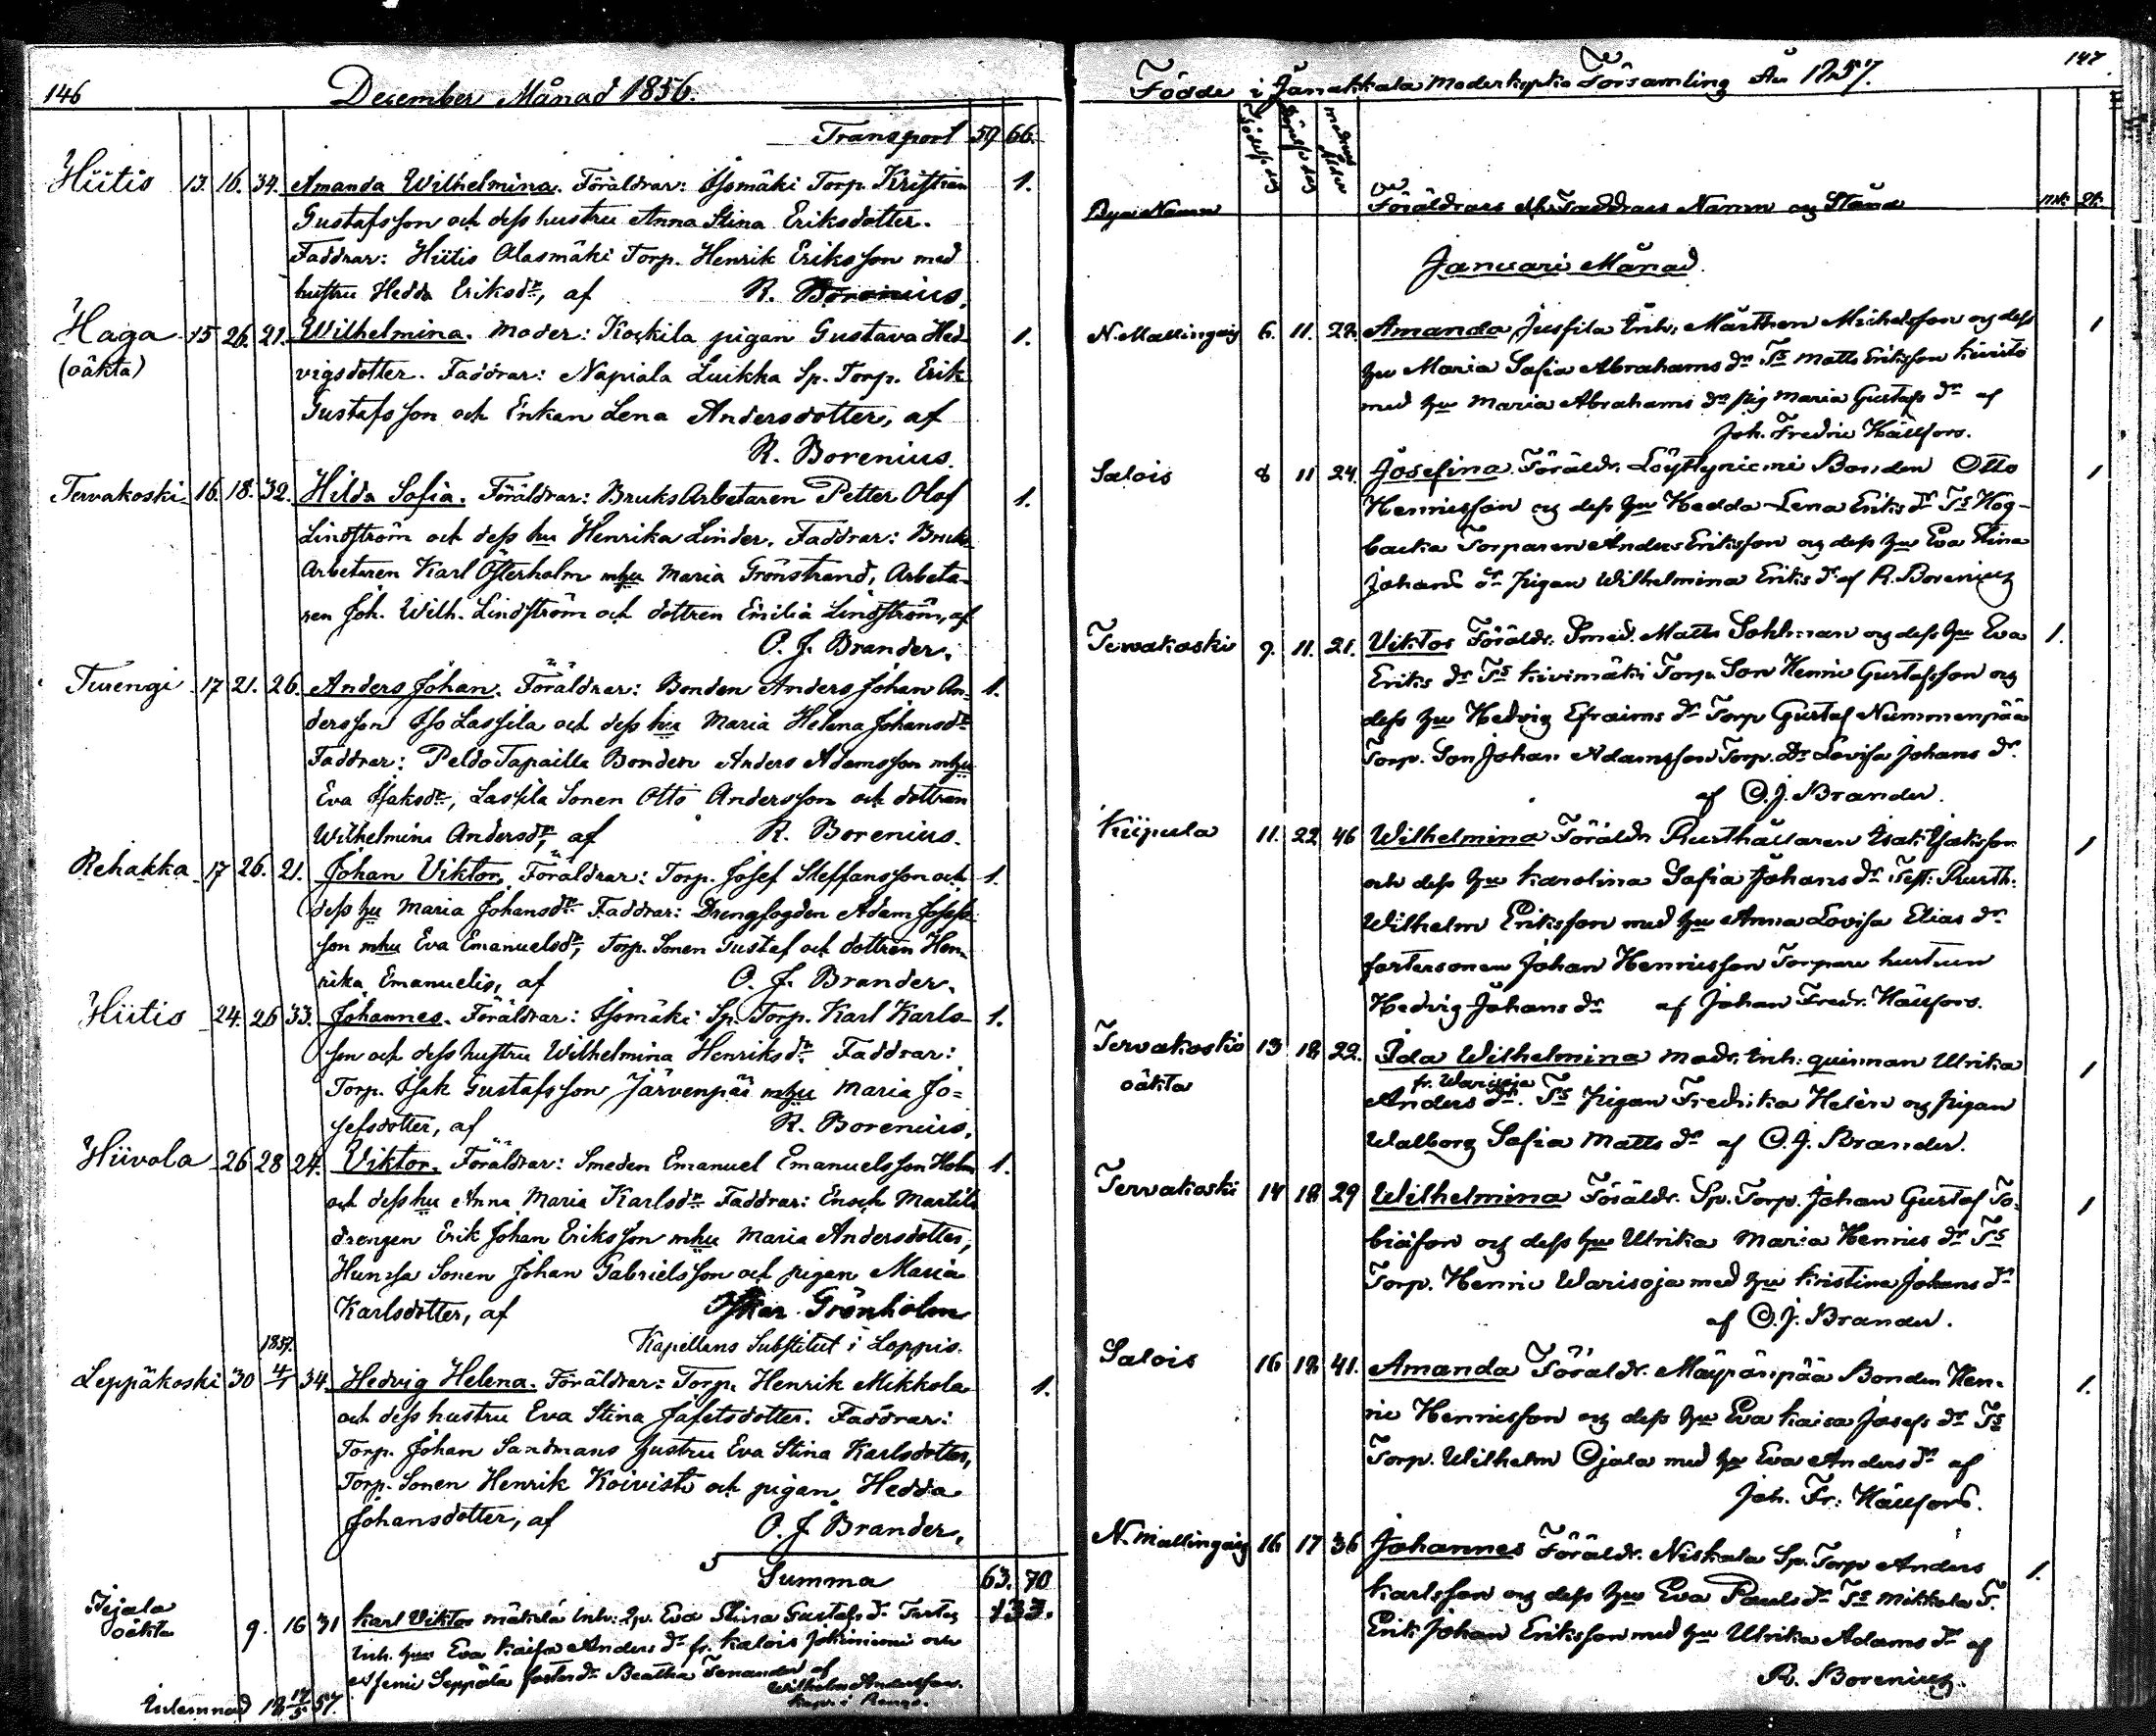 146
December Månad 1856.
Transport 59 66.
Hiitis 13. 16. 34. Amanda Wilhelmina. Föräldrar: Isomäki Torp. Kristian 1.
Gustafsson och dess hustru Anna Stina Eriksdotter.
Faddrar: Hiitis Alasmäki Torp. Henrik Eriksson med
hustru Hedda Eriksdr, af R. Borenius.
Haga 15 26. 21. Wilhelmina. Moder: Kockila pigan Gustava Hed- 1.
(oäkta) vigsdotter. Faddrar: Napiala Luikka Sp. Torp. Erik
Gustafsson och Enkan Lena Andersdotter, af
R. Borenius.
Tervakoski 16. 18. 32. Hilda Sofia. Föräldrar: Bruks Arbetaren Petter Olof 1.
Lindström och dess hu Henrika Linder. Faddrar: Bruks
Arbetaren Karl Österholm mhu Maria Grönstrand, Arbeta-
ren Joh. Wilh. Lindström och dottren Emilia Lindström, af
O. J. Brander.
Turengi 17 21. 26. Anders Johan. Föräldrar: Bonden Anders Johan An- 1.
dersson Iso Lassila och dess hu Maria Helena Johansdr
Faddrar: Peldo Tapaille Bonden Anders Adamsson mhu
Eva Isaksdr, Lassila Sonen Otto Andersson och dottren
Wilhelmina Andersdr, af R. Borenius.
Rehakka 17 26. 21. Johan Viktor. Föräldrar: Torp. Josef Steffansson och 1.
dess hu Maria Johansdr Faddrar: Drengfogden Adam Josefs-
son mhu Eva Emanuelsdr, Torp. Sonen Gustaf och dottren Hen-
rika Emanuelis, af O. J. Brander.
Hiitis 24. 26 33. Johannes. Föräldrar: Isomäki Sp. Torp. Karl Karls- 1.
son och dess hustru Wilhelmina Henriksdr Faddrar:
Torp. Isak Gustafsson Järvenpää mhu Maria Jo-
sefsdotter, af R. Borenius.
Hiivola 26 28 24. Viktor. Föräldrar: Smeden Emanuel Emanuelsson Holm 1.
och dess hu Anna Maria Karlsdr Faddrar: Enoch Martils
drengen Erik Johan Eriksson mhu Maria Andersdotter,
Hunsa Sonen Johan Gabrielsson och pigan Maria
Karlsdotter, af Oskar Grönholm
Kapellans Substitut i Loppis.
1857.
Leppäkoski 30 4/1 34. Hedvig Helena. Föräldrar: Torp. Henrik Mikkola 1.
och dess hustru Eva Stina Jafetsdotter. Faddrar:
Torp. Johan Sandmans hustru Eva Stina Karlsdotter,
Torp. Sonen Henrik Koivisto och pigan Hedda
Johansdotter, af O. J. Brander.
Summa 63. 70
133.
oäkta 9. 16 31 Karl Viktor Mäkelä Inh: Eva Stina Gustafs dr
Inh. Eva Kaisa Anders dr fr. Kalois Jokiniemi och
Seppälä fosterdr Beatha Fernander af
Wilhelm Andersson
Kapn i Renge.
147
Födde i Janakkala Moderkyrko Församling År 1857.
Födelse dag Döpelse dag Modrens ålder
Byns Namn Föräldrars och Faddrars Namn og Stånd mk. qk.
Januari Månad.
N. Mallingais 6. 11. 22. Amanda Jusfila Inh. Mårthen Michelsson og dess 1
hu Maria Sofia Abrahams dr Ts Matts Eriksson Kivistö
med hu Maria Abrahams dr pig Maria Gustafs dr af
Joh. Fredric Hällfors.
Salois 8 11 24. Josefina Föräldr. Löyttyniemi Bonden Otto 1
Henricsson og dess hu Hedda Lena Eriks dr Ts Hög-
backa Torparen Anders Eriksson og dess hu Eva Stina
Johans dr Pigan Wilhelmina Eriks dr af R. Borenius
Tervakoski 9. 11. 21. Viktor Föräldr. Smed. Matts Sohlman og dess hu Eva 1.
Eriks dr Ts Kivimäki Torp. Son Henric Gustafsson og
dess hu Hedvig Efraims dr Torp Gustaf Nummenpää
Torp. Son Johan Adamsson Torp. Dr Lovisa Johans dr
af O. J. Brander.
Kiipula 11. 22 46 Wilhelmina Föräldr Rusthållaren Isak Isaksson 1
och dess hu Karolina Sofia Johans dr Test: Rusth:
Wilhelm Eriksson med hu Anna Lovisa Elias dr
fostersonen Johan Henricsson Torpare hustrun
Hedvig Johans dr af Johan Fredr. Hällfors.
Tervakoski 13 18 22. Ida Wilhelmina Modr. Inh: quinnan Ulrika 1
oäkta fr. Warisoja
Anders dr. Ts Pigan Fredrika Helén og Pigan
Walborg Sofia Matts dr af O. J. Brander.
Tervakoski 14 18 29 Wilhelmina Föräldr. Sp. Torp. Johan Gustaf To- 1
biasson og dess hu Ulrika Maria Henrics dr Ts
Torp. Henric Warisoja med hu Kristina Johans dr
af O. J. Brander.
Salois 16 18 41. Amanda Föräldr. Bonden Hen- 1.
ric Henricsson og dess hu Eva Kaisa Josefs dr Ts
Torp. Wilhelm Ojala med hu Eva Anders dr af
Joh. Fr: Hällfors.
N. Mallingais 16 17 36 Johannes Föräldr. Niskala Sp. Torp Anders 1.
Karlsson og dess hu Eva Pauls dr Ts Mikkola T.
Erik Johan Eriksson med hu Ulrika Adams dr af
R. Borenius.